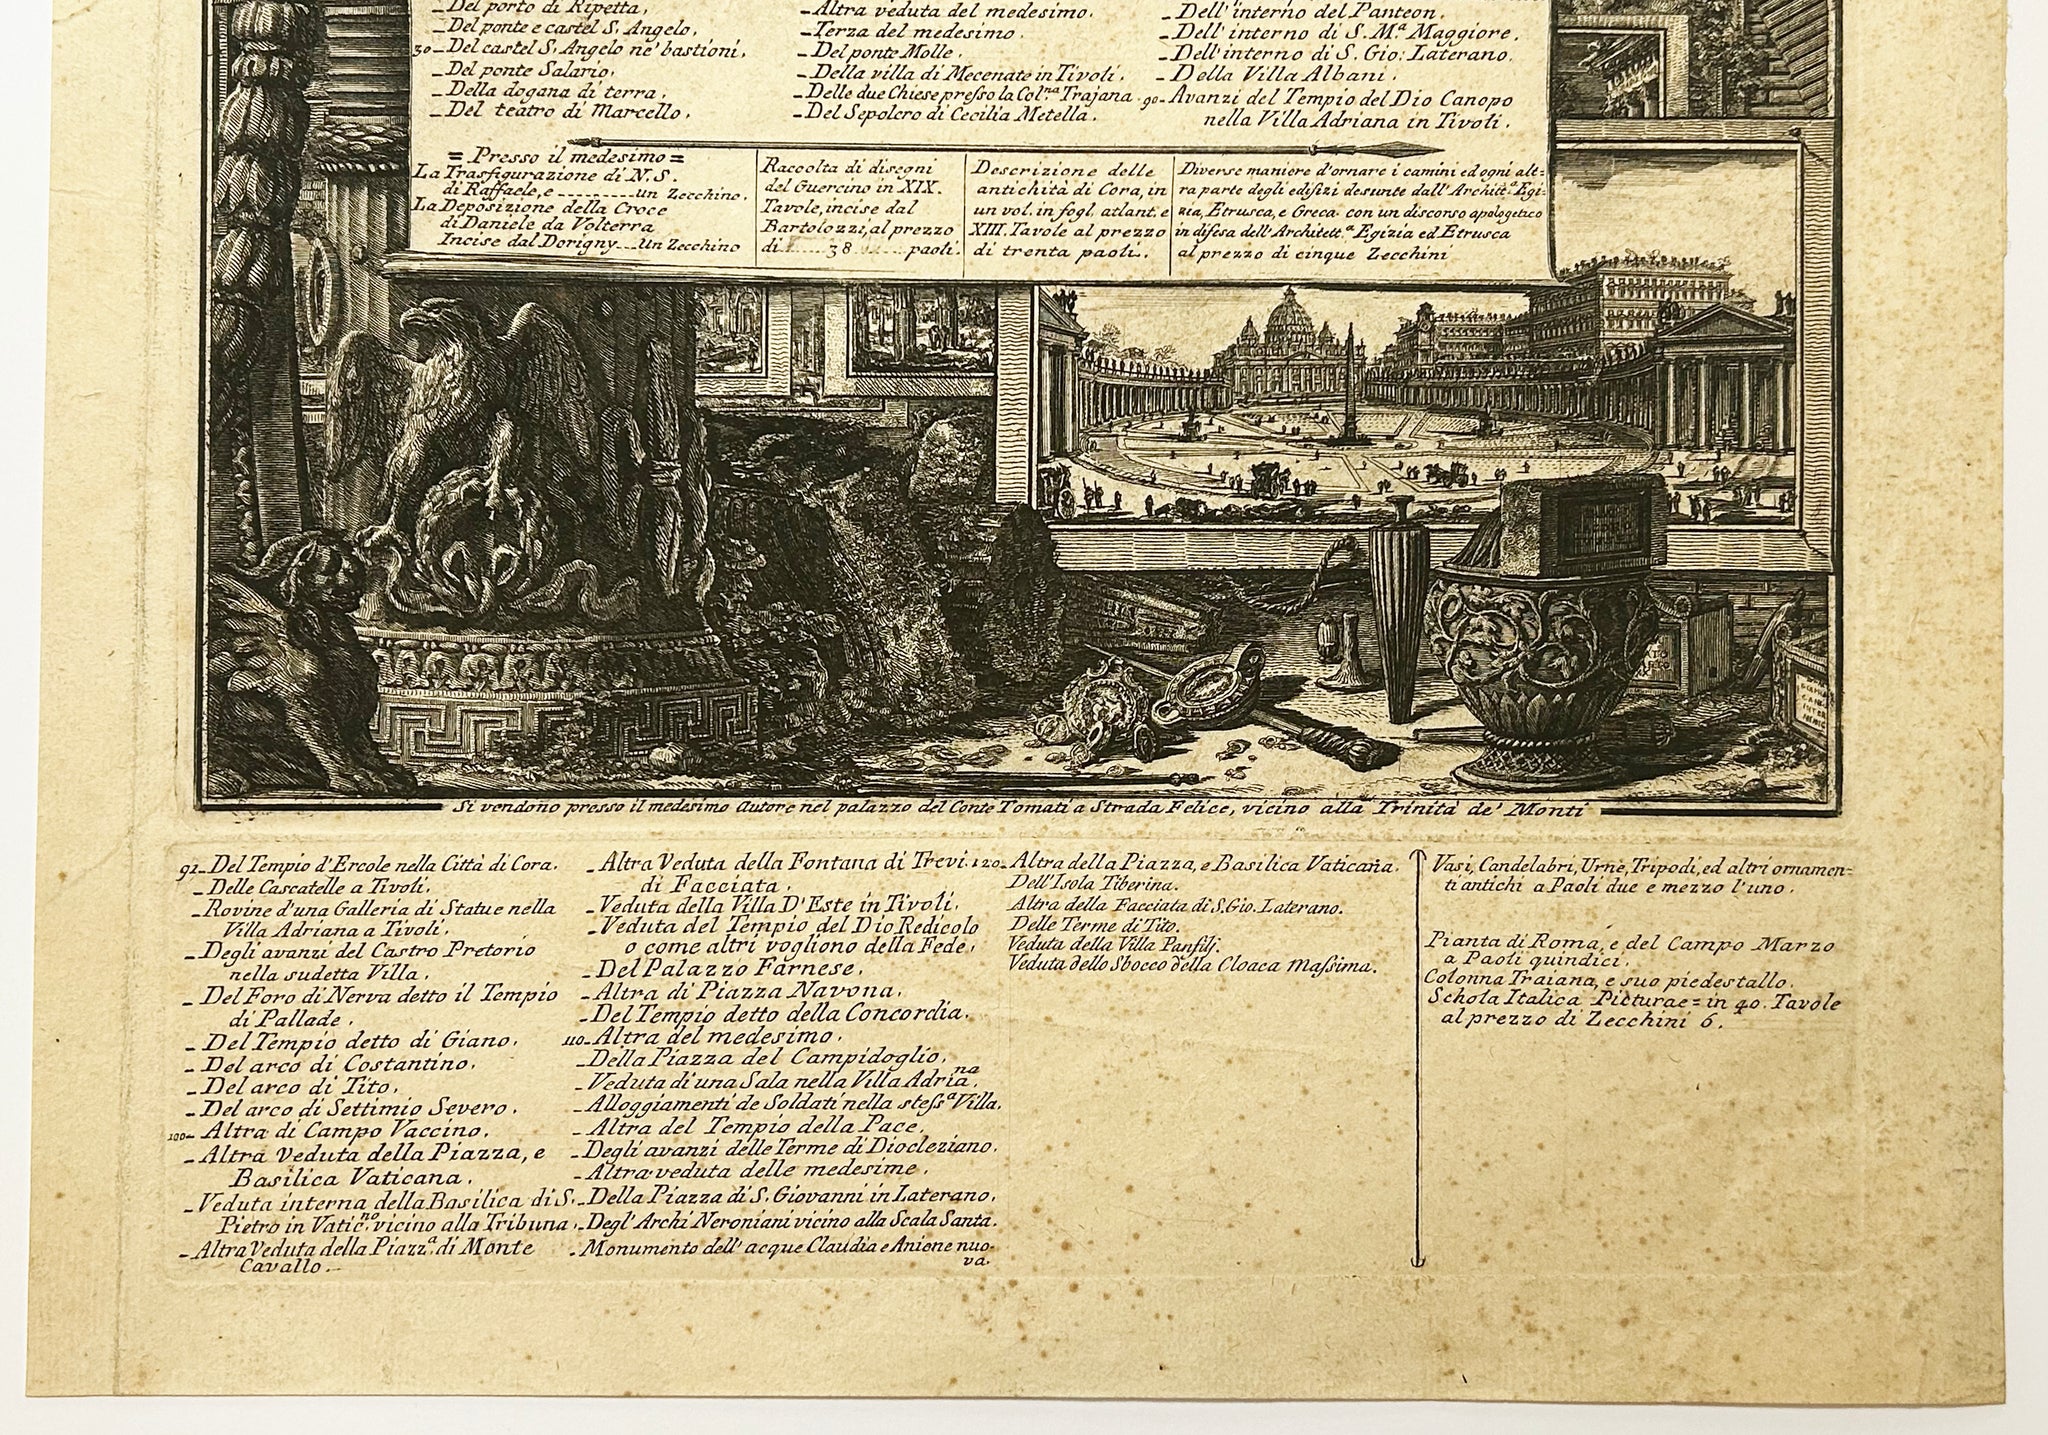 _Del porto di Ripetta,
_Del ponte e castel S. Angelo,
30_Del castel S. Angelo ne' bastioni,
_Del ponte Salario,
_Della dogana di terra,
_Del teatro di Marcello,
_Altra veduta del medesimo.
_Terza del medesimo.
_Del ponte Molle,
_Della villa di Mecenate in Tivoli,
_Delle due Chiese presso la Col.na Trajana
_Del Sepolcro di Cecilia Metella.
_Dell'interno del Panteon.
_Dell'interno di S. M.a Maggiore.
_Dell'interno di S. Gio: Laterano.
_Della Villa Albani.
90_Avanzi del Tempio del Dio Canopo
nella Villa Adriana in Tivoli.
= Presso il medesimo =
La Trasfigurazione di N. S.
di Raffaele, e ........ un Zecchino.
La Deposizione della Croce
di Daniele da Volterra
Incise dal Dorigny....un Zecchino
Raccolta di disegni
del Guercino in XIX.
Tavole, incise dal
Bartolozzi, al prezzo
di ...... 38 ...... paoli.
Descrizione delle
antichità di Cora, in
un vol. in fogl. atlant. e
XIII. Tavole al prezzo
di trenta paoli.
Diverse maniere d'ornare i camini ed ogni alt-
ra parte degli edifizi desunte dall'Archit.a Egi-
zia, Etrusca, e Greca con un discorso apologetico
in difesa dell'Architett.a Egizia ed Etrusca
al prezzo di cinque Zecchini
Si vendono presso il medesimo Autore nel palazzo del Conte Tomati a Strada Felice, vicino alla Trinità de' Monti
92_Del Tempio d'Ercole nella Città di Cora.
_Delle Cascatelle a Tivoli.
_Rovine d'una Galleria di Statue nella
Villa Adriana a Tivoli.
_Degli avanzi del Castro Pretorio
nella sudetta Villa.
_Del Foro di Nerva detto il Tempio
di Pallade.
_Del Tempio detto di Giano.
_Del arco di Costantino.
_Del arco di Tito.
_Del arco di Settimio Severo.
100_Altra di Campo Vaccino.
_Altra veduta della Piazza, e
Basilica Vaticana.
_Veduta interna della Basilica di S.
Pietro in Vatic.no vicino alla Tribuna.
_Altra Veduta della Piazz.a di Monte
Cavallo.
_Altra Veduta della Fontana di Trevi
di Facciata.
_Veduta della Villa D'Este in Tivoli.
_Veduta del Tempio del Dio Redicolo
o come altri vogliono della Fede.
_Del Palazzo Farnese.
_Altra di Piazza Navona.
_Del Tempio detto della Concordia.
110_Altra del medesimo.
_Della Piazza del Campidoglio.
_Veduta di una Sala nella Villa Adria.na
_Alloggiamenti de Soldati nella stess.a Villa.
_Altra del Tempio della Pace.
_Degli avanzi delle Terme di Diocleziano.
_Altra veduta delle medesime.
_Della Piazza di S. Giovanni in Laterano.
_Degl'Archi Neroniani vicino alla Scala Santa.
_Monumento dell'acque Claudia e Aniene nuo-
va.
120_Altra della Piazza, e Basilica Vaticana.
Dell'Isola Tiberina.
Altra della Facciata di S. Gio. Laterano.
Delle Terme di Tito.
Veduta della Villa Panfilj.
Veduta dello Sbocco della Cloaca Massima.
Vasi, Candelabri, Urne, Tripodi, ed altri ornamen-
ti antichi a Paoli due e mezzo l'uno.
Pianta di Roma, e del Campo Marzo
a Paoli quindici.
Colonna Traiana, e suo piedestallo.
Schola Italica Picturae = in 40. Tavole
al prezzo di Zecchini 6.